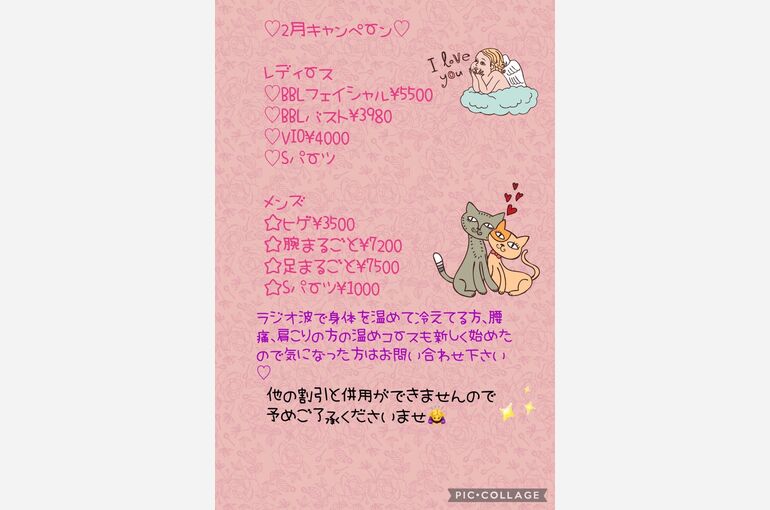 ♡2月キャンペーン♡
I love you
レディース
♡BBLフェイシャル¥5500
♡BBLバスト¥3980
♡VIO¥4000
♡Sパーツ
メンズ
☆ヒゲ¥3500
☆腕まるごと¥7200
☆足まるごと¥7500
☆Sパーツ¥1000
ラジオ波で身体を温めて冷えてる方、腰
痛、肩こりの方の温めコースも新しく始めた
ので気になった方はお問い合わせ下さい
♡
他の割引と併用ができませんので
予めご了承くださいませ🙇‍♀️
PIC•COLLAGE